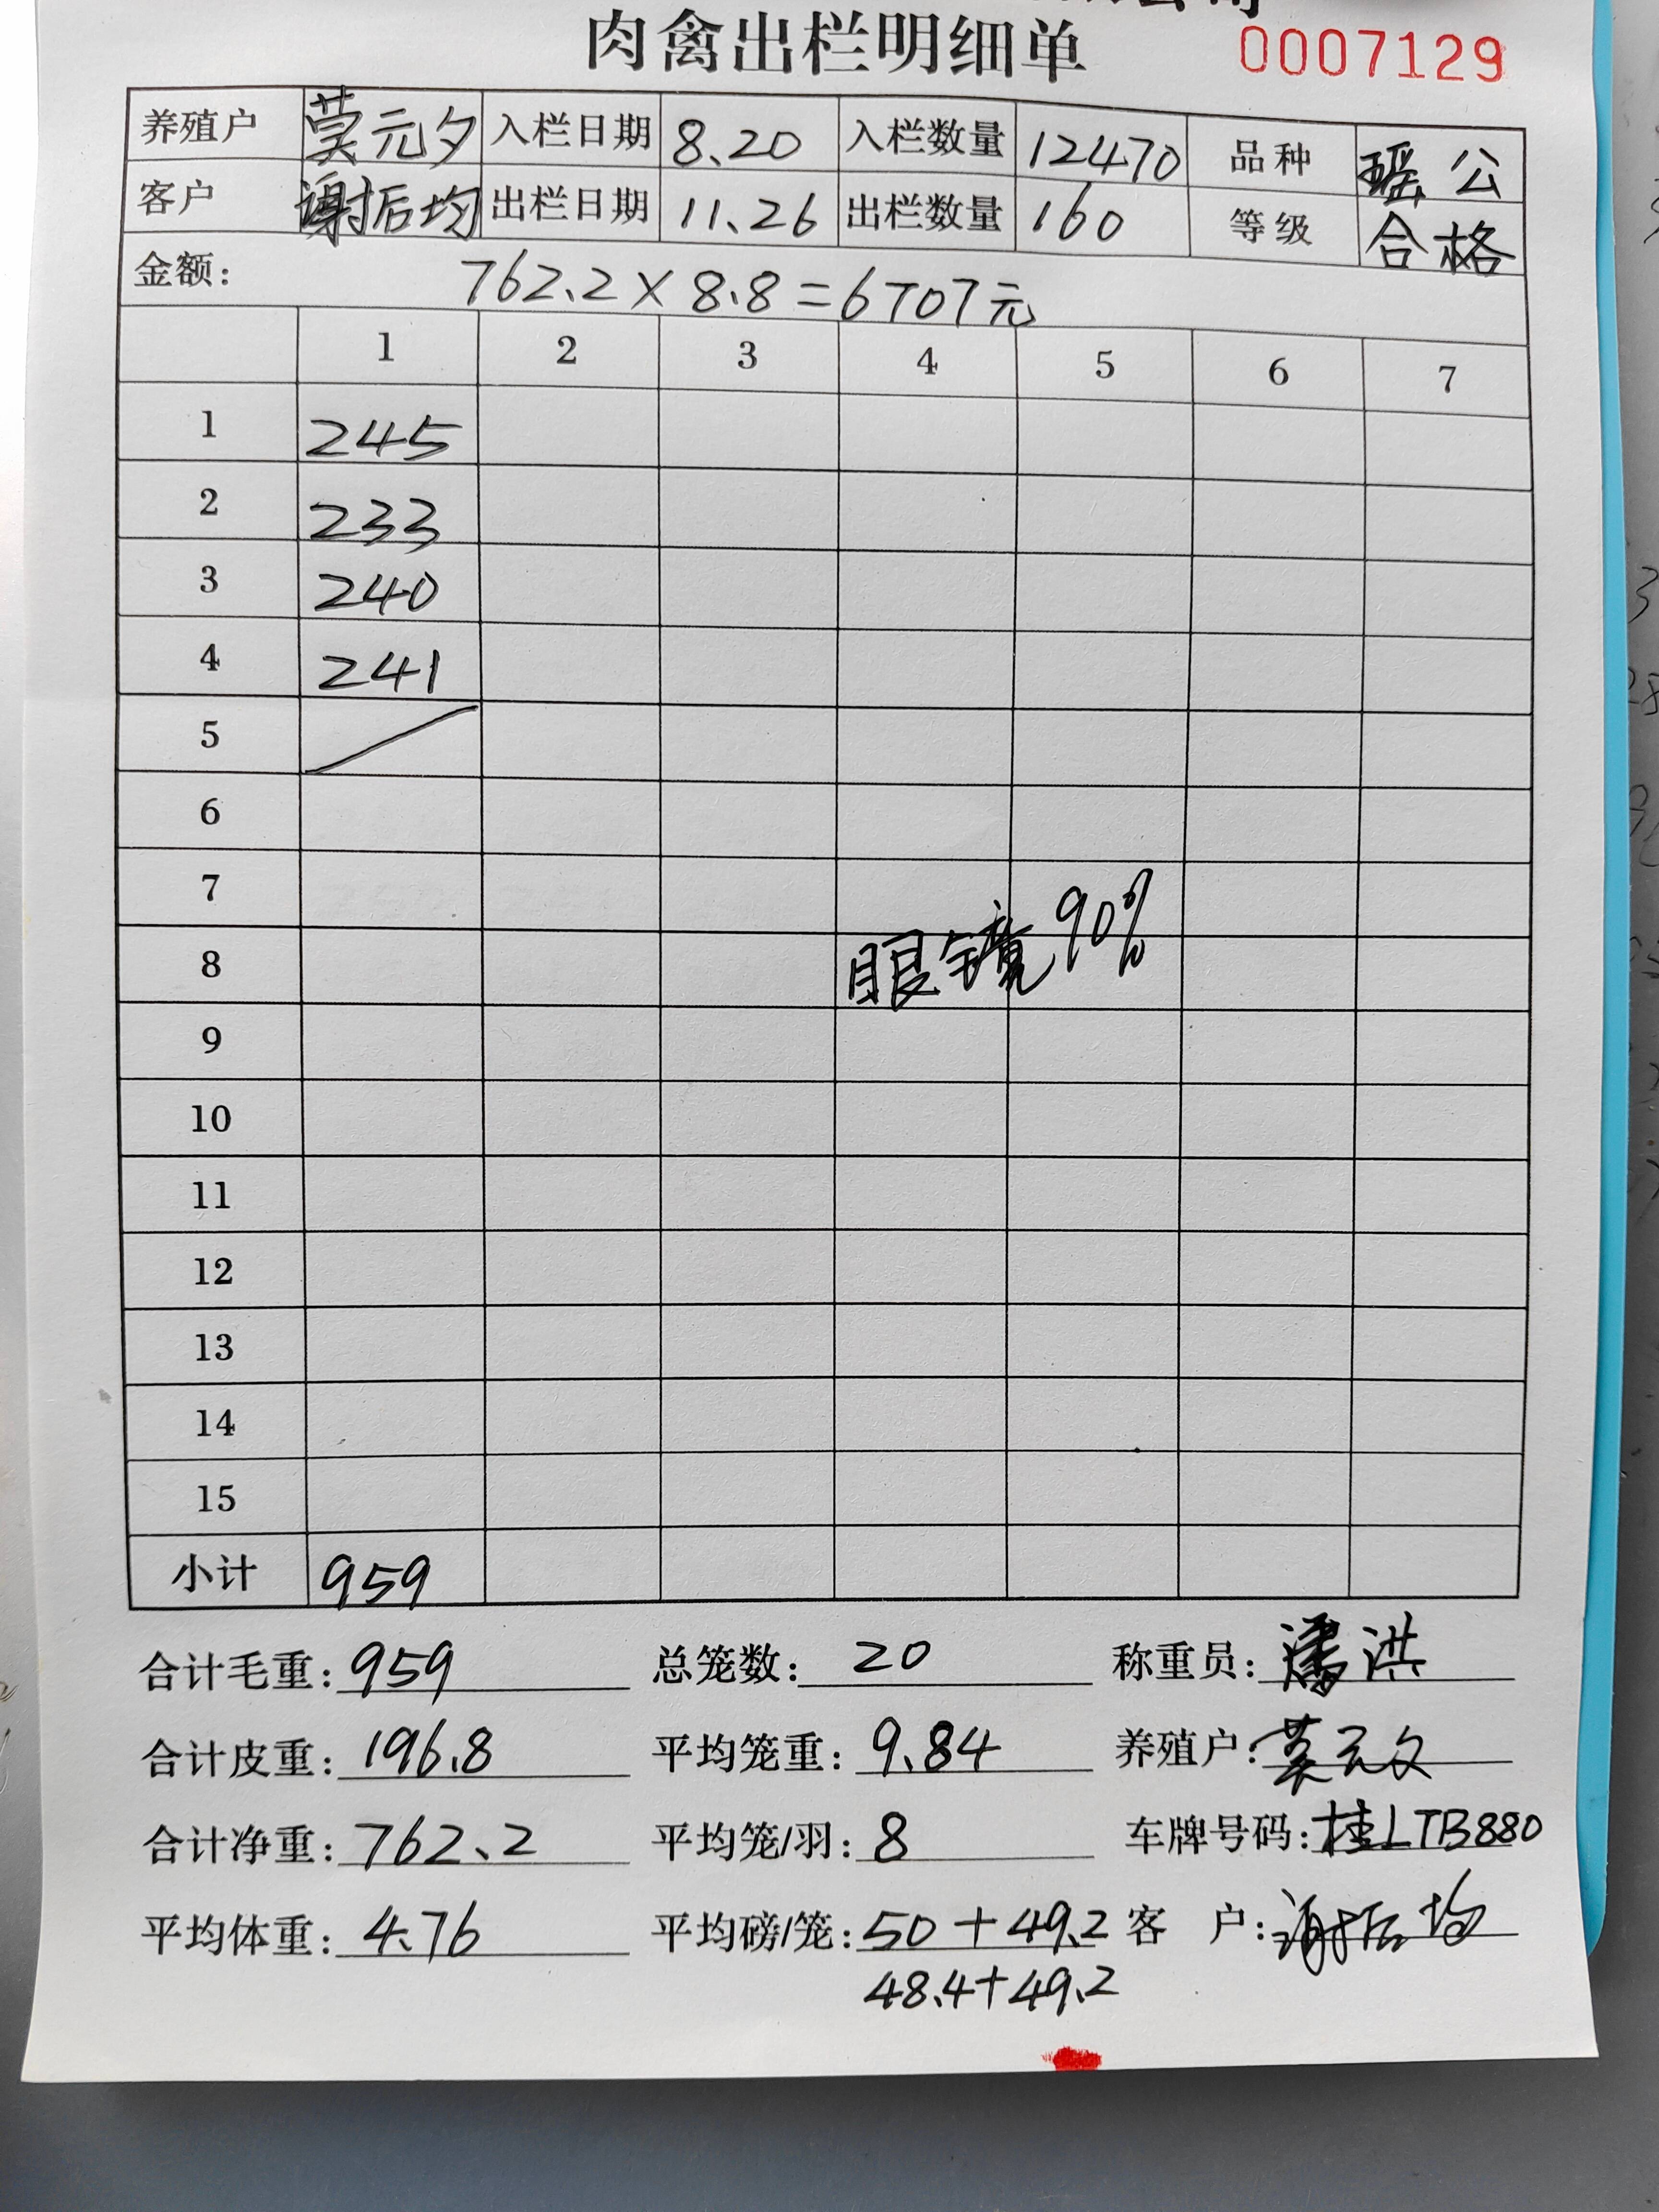 肉禽出栏明细单 0007129
养殖户 莫元夕 入栏日期 8.20 入栏数量 12470 品种 瑶公
客户 谢振均 出栏日期 11.26 出栏数量 160 等级 合格
金额: 762.2×8.8=6707元
1 2 3 4 5 6 7
1 245
2 233
3 240
4 241
5
6
7
8 眼镜90%
9
10
11
12
13
14
15
小计 959
合计毛重: 959 总笼数: 20 称重员: 潘洪
合计皮重: 196.8 平均笼重: 9.84 养殖户: 莫元夕
合计净重: 762.2 平均笼/羽: 8 车牌号码: 桂LTB880
平均体重: 4.76 平均磅/笼: 50+49.2 客 户:
48.4+49.2